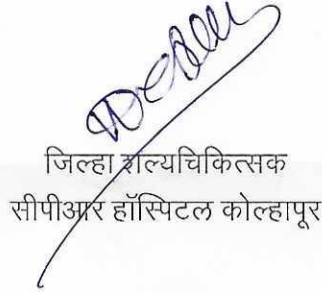 जिल्हा शल्यचिकित्सक
सीपीआर हॉस्पिटल कोल्हापूर